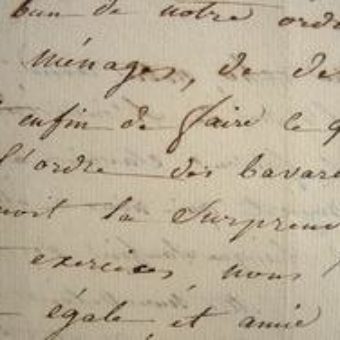 ban de notre ordr
ménages, de de
enfin de faire le q
l'ordre des bavar
la surpren
exercices, nous
égale et amie